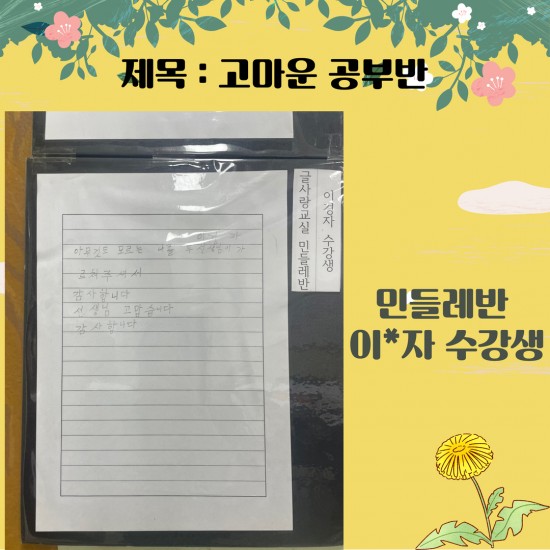 제목 : 고마운 공부반
글사랑교실 민들레반
이경자 수강생
아무것도 모르는 나를
감사합니다
선생님 고맙습니다
감사합니다
민들레반
이*자 수강생